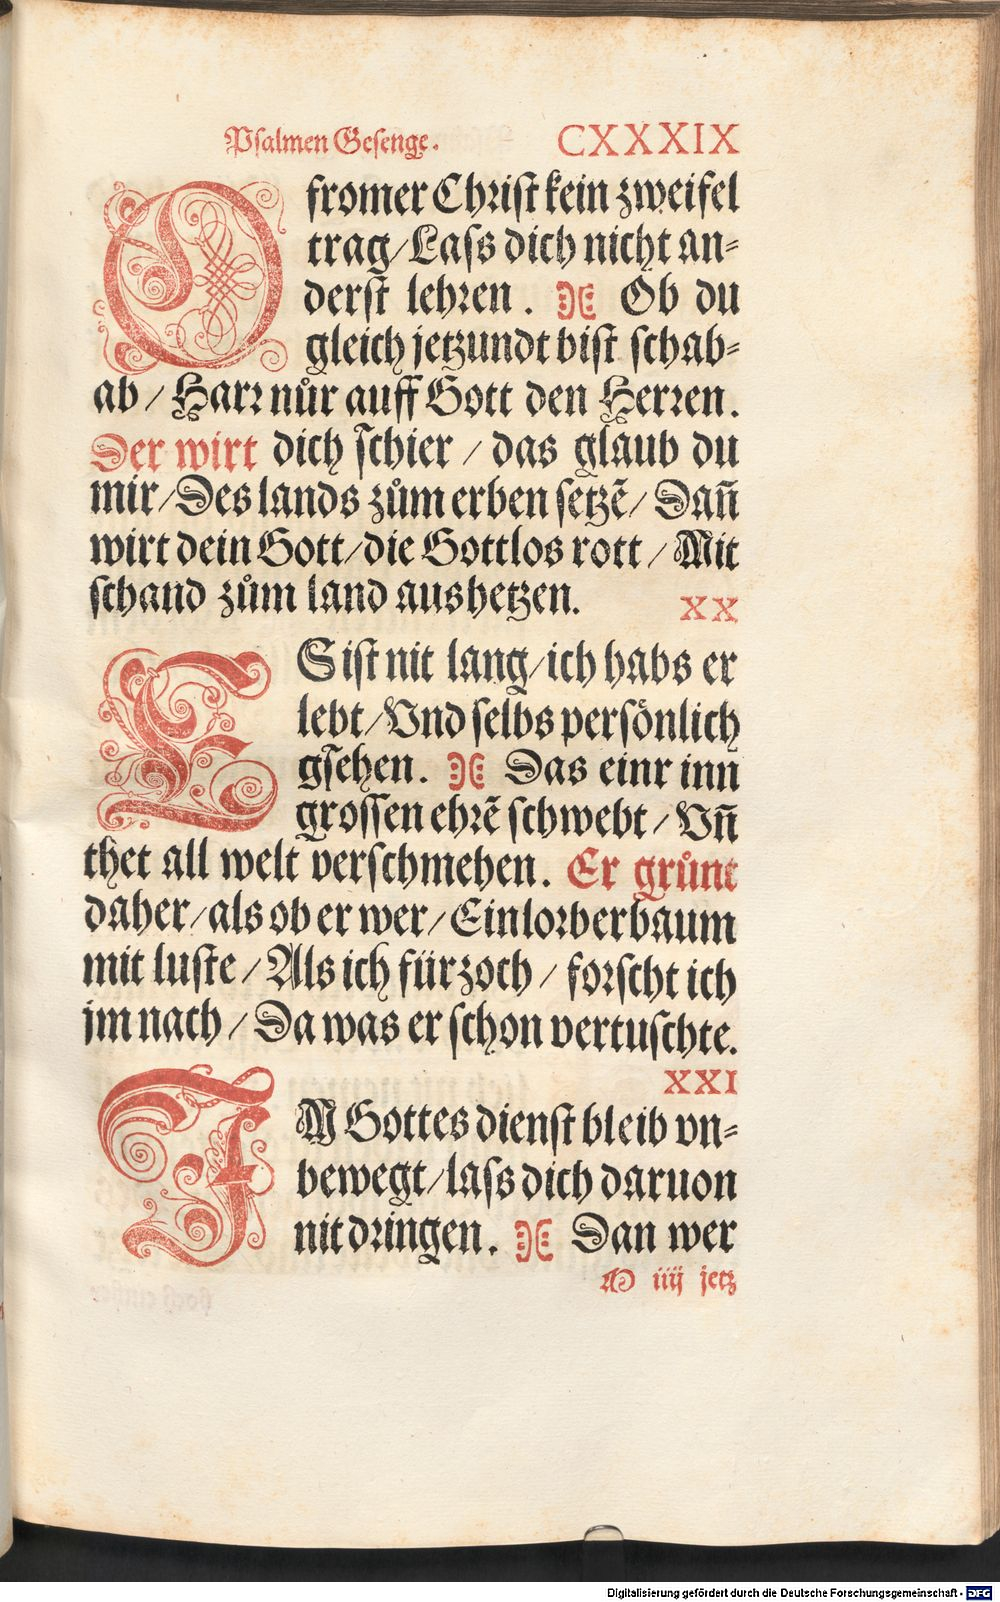 Psalmen Gesenge. CXXXIX
O fromer Christ kein zweifel
trag/Lass dich nicht an=
derst lehren. Ob du
gleich jetzundt bist schab=
ab/Harr nůr auff Gott den Herren.
Der wirt dich schier/das glaub du
mir/Des lands zům erben setzẽ/Dañ
wirt dein Gott/die Gottlos rott/Mit
schand zům land aushetzen.
XX
ES ist nit lang/ich habs er
lebt/Vnd selbs persönlich
gsehen. Das einr inn
grossen ehrẽ schwebt/Vñ
thet all welt verschmehen. Er grůnt
daher/als ob er wer/Ein lorberbaum
mit luste/Als ich fürzoch/forscht ich
jm nach/Da was er schon vertuschte.
XXI
IN Gottes dienst bleib vn=
bewegt/lass dich daruon
nit dringen. Dan wer
iiij jetz
Digitalisierung gefördert durch die Deutsche Forschungsgemeinschaft - DFG